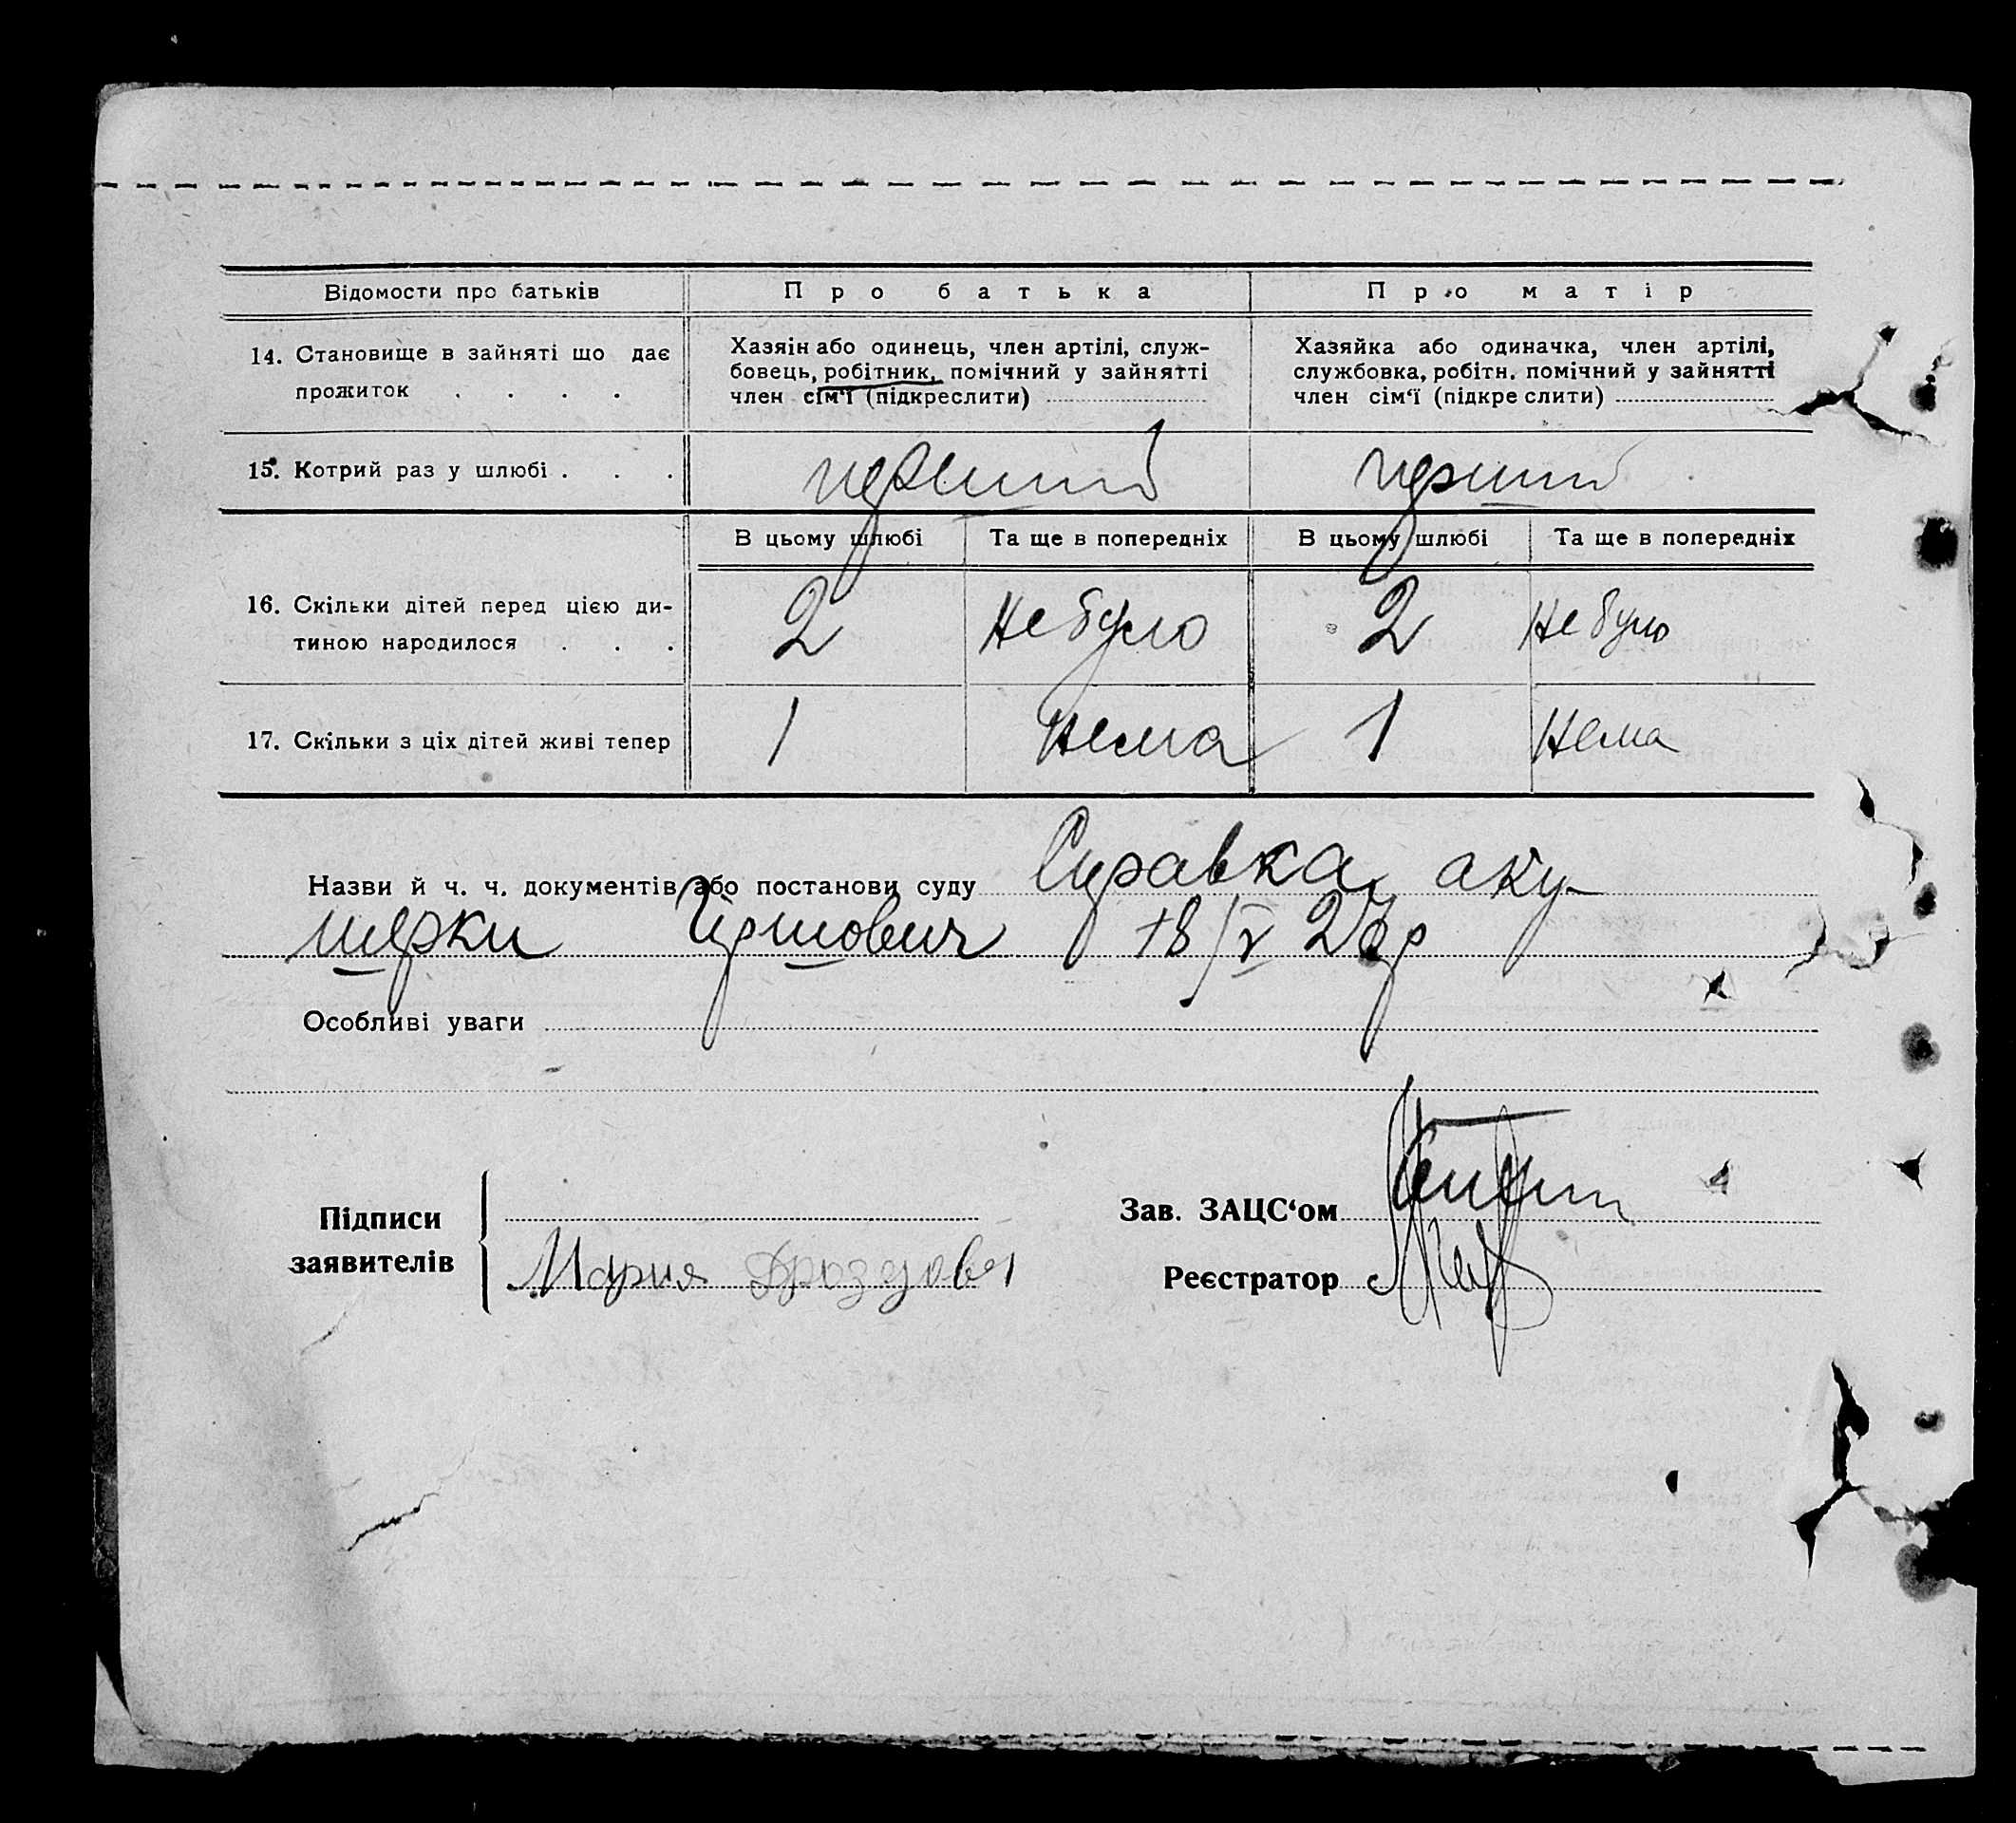 Відомости про батьків
Про батька
Про матір
14. Становище в зайняті що дає
прожиток . . . .
Хазяін або одинець, член артілі, служ-
бовець, робітник, помічний у зайнятті
член сім'ї (підкреслити)
Хазяйка або одиначка, член артілі,
службовка, робітн. помічний у зайнятті
член сім'ї (підкреслити)
15. Котрий раз у шлюбі . . .
перший
перший
В цьому шлюбі
Та ще в попередніх
В цьому шлюбі
Та ще в попередніх
16. Скільки дітей перед цією ди-
тиною народилося . . .
2
не було
2
не було
17. Скільки з ціх дітей живі тепер
1
нема
1
нема
Назви й ч. ч. документів або постанови суду Справка аку-
шерки 18/V
Особливі уваги
Підписи
заявителів
Мария Дроздова
Зав. ЗАЦС'ом
Реєстратор